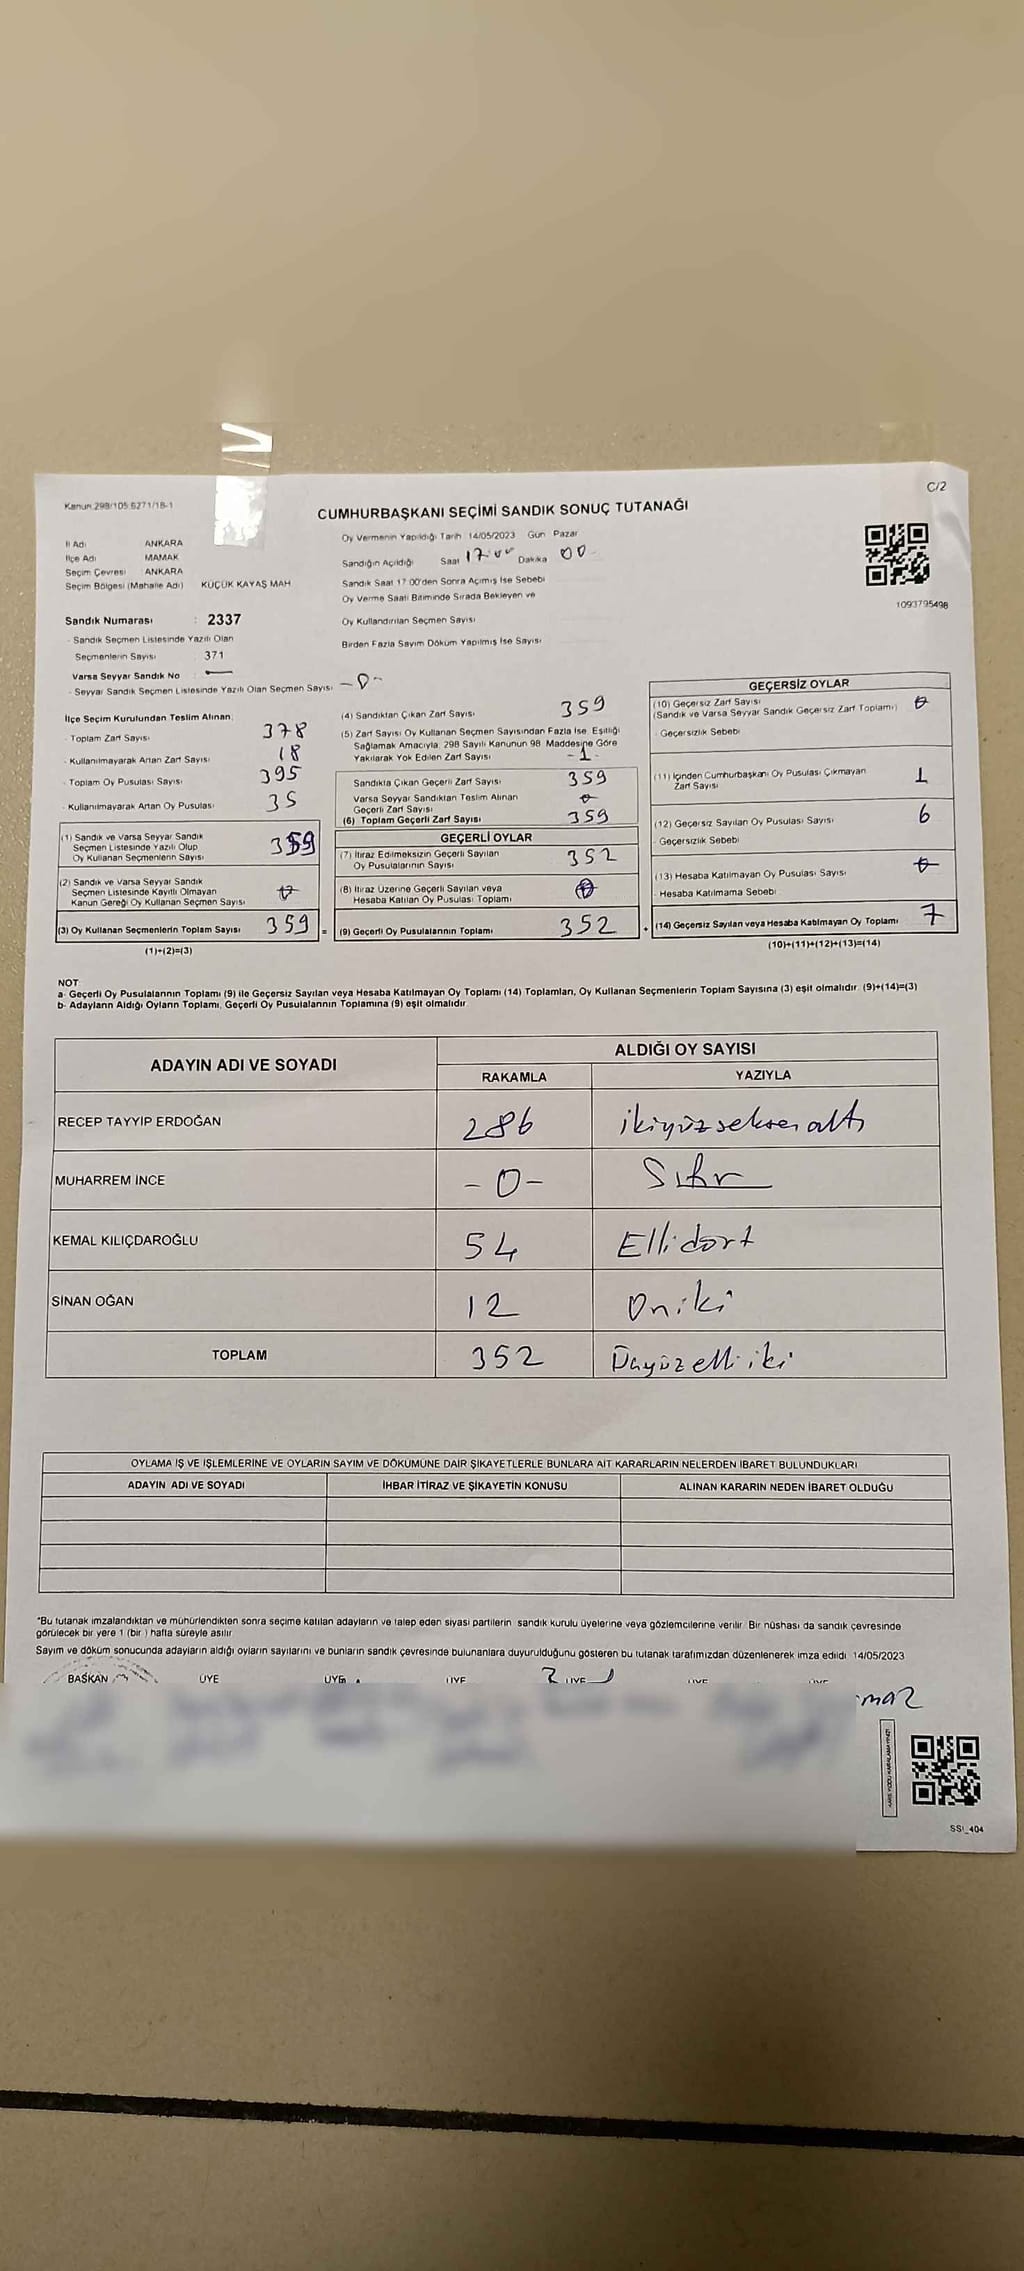 C/2
Kanun 298/105 6271/18-1
CUMHURBAŞKANI SEÇİMİ SANDIK SONUÇ TUTANAĞI
İl Adı ANKARA
İlçe Adı MAMAK
Seçim Çevresi ANKARA
Seçim Bölgesi (Mahalle Adı) KÜÇÜK KAYAŞ MAH
Oy Vermenin Yapıldığı Tarih 14/05/2023 Gün Pazar
Sandığın Açıldığı Saat 17:00 Dakika 00
Sandık Saat 17 00'den Sonra Açımış İse Sebebi
Oy Verme Saati Bitiminde Sırada Bekleyen ve
Oy Kullandırılan Seçmen Sayısı
Birden Fazla Sayım Döküm Yapılmış İse Sayısı
1093795498
Sandık Numarası : 2337
- Sandık Seçmen Listesinde Yazılı Olan
Seçmenlerin Sayısı 371
Varsa Seyyar Sandık No —
- Seyyar Sandık Seçmen Listesinde Yazılı Olan Seçmen Sayısı -0-
İlçe Seçim Kurulundan Teslim Alınan
- Toplam Zarf Sayısı 378
- Kullanılmayarak Artan Zarf Sayısı 18
- Toplam Oy Pusulası Sayısı 395
- Kullanılmayarak Artan Oy Pusulası 35
(1) Sandık ve Varsa Seyyar Sandık
Seçmen Listesinde Yazılı Olup
Oy Kullanan Seçmenlerin Sayısı 359
(2) Sandık ve Varsa Seyyar Sandık
Seçmen Listesinde Kayıtlı Olmayan
Kanun Gereği Oy Kullanan Seçmen Sayısı 0
(3) Oy Kullanan Seçmenlerin Toplam Sayısı 359 =
(1)+(2)=(3)
(4) Sandıktan Çıkan Zarf Sayısı 359
(5) Zarf Sayısı Oy Kullanan Seçmen Sayısından Fazla İse, Eşitliği
Sağlamak Amacıyla, 298 Sayılı Kanunun 98 Maddesine Göre
Yakılarak Yok Edilen Zarf Sayısı -1-
Sandıkta Çıkan Geçerli Zarf Sayısı 359
Varsa Seyyar Sandıktan Teslim Alınan
Geçerli Zarf Sayısı 0
(6) Toplam Geçerli Zarf Sayısı 359
GEÇERLİ OYLAR
(7) İtiraz Edilmeksizin Geçerli Sayılan
Oy Pusulalarının Sayısı 352
(8) İtiraz Üzerine Geçerli Sayılan veya
Hesaba Katılan Oy Pusulası Toplamı 0
(9) Geçerli Oy Pusulalarının Toplamı 352 +
GEÇERSİZ OYLAR
(10) Geçersiz Zarf Sayısı 0
(Sandık ve Varsa Seyyar Sandık Geçersiz Zarf Toplamı)
- Geçersizlik Sebebi
(11) İçinden Cumhurbaşkanı Oy Pusulası Çıkmayan
Zarf Sayısı 1
(12) Geçersiz Sayılan Oy Pusulası Sayısı 6
- Geçersizlik Sebebi
(13) Hesaba Katılmayan Oy Pusulası Sayısı 0
- Hesaba Katılmama Sebebi
(14) Geçersiz Sayılan veya Hesaba Katılmayan Oy Toplamı 7
(10)+(11)+(12)+(13)=(14)
NOT
a- Geçerli Oy Pusulalarının Toplamı (9) ile Geçersiz Sayılan veya Hesaba Katılmayan Oy Toplamı (14) Toplamları, Oy Kullanan Seçmenlerin Toplam Sayısına (3) eşit olmalıdır. (9)+(14)=(3)
b- Adayların Aldığı Oyların Toplamı, Geçerli Oy Pusulalarının Toplamına (9) eşit olmalıdır.
ADAYIN ADI VE SOYADI
ALDIĞI OY SAYISI
RAKAMLA YAZIYLA
RECEP TAYYİP ERDOĞAN 286 ikiyüzseksenaltı
MUHARREM İNCE -0- Sıfır
KEMAL KILIÇDAROĞLU 54 Ellidört
SİNAN OĞAN 12 Oniki
TOPLAM 352 Üçyüzelliiki
OYLAMA İŞ VE İŞLEMLERİNE VE OYLARIN SAYIM VE DÖKÜMÜNE DAİR ŞİKAYETLERLE BUNLARA AİT KARARLARIN NELERDEN İBARET BULUNDUKLARI
ADAYIN ADI VE SOYADI İHBAR İTİRAZ VE ŞİKAYETİN KONUSU ALINAN KARARIN NEDEN İBARET OLDUĞU
*Bu tutanak imzalandıktan ve mühürlendikten sonra seçime katılan adayların ve talep eden siyasi partilerin sandık kurulu üyelerine veya gözlemcilerine verilir. Bir nüshası da sandık çevresinde
görülecek bir yere 1 (bir ) hafta süreyle asılır.
Sayım ve döküm sonucunda adayların aldığı oyların sayılarını ve bunların sandık çevresinde bulunanlara duyurulduğunu gösteren bu tutanak tarafımızdan düzenlenerek imza edildi. 14/05/2023
BAŞKAN ÜYE ÜYE ÜYE ÜYE ÜYE ÜYE
KARE KODU KARALAMAYINIZ!
SSİ_404